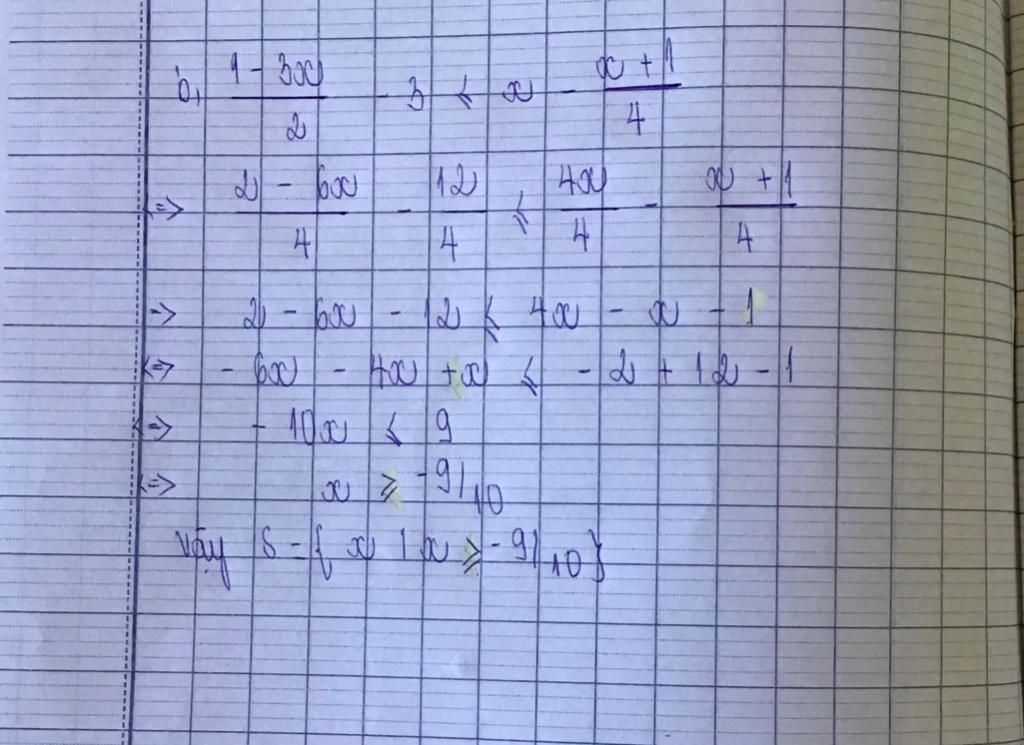 b, (1 - 3x)/2 - 3 ≤ x - (x + 1)/4
<=> (2 - 6x)/4 - 12/4 ≤ 4x/4 - (x + 1)/4
=> 2 - 6x - 12 ≤ 4x - x - 1
<=> - 6x - 4x + x ≤ - 2 + 12 - 1
<=> - 10x ≤ 9
<=> x ≥ -9/10
Vậy S = { x | x ≥ -9/10 }